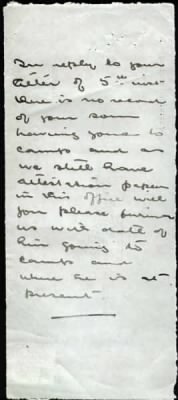 In reply to your
letter of 5th inst
there is no record
of your son
having gone to
camp and as
we still have
attestation paper
in this office will
you please furnish
us with date of
him going to
camp and
where he is at
present